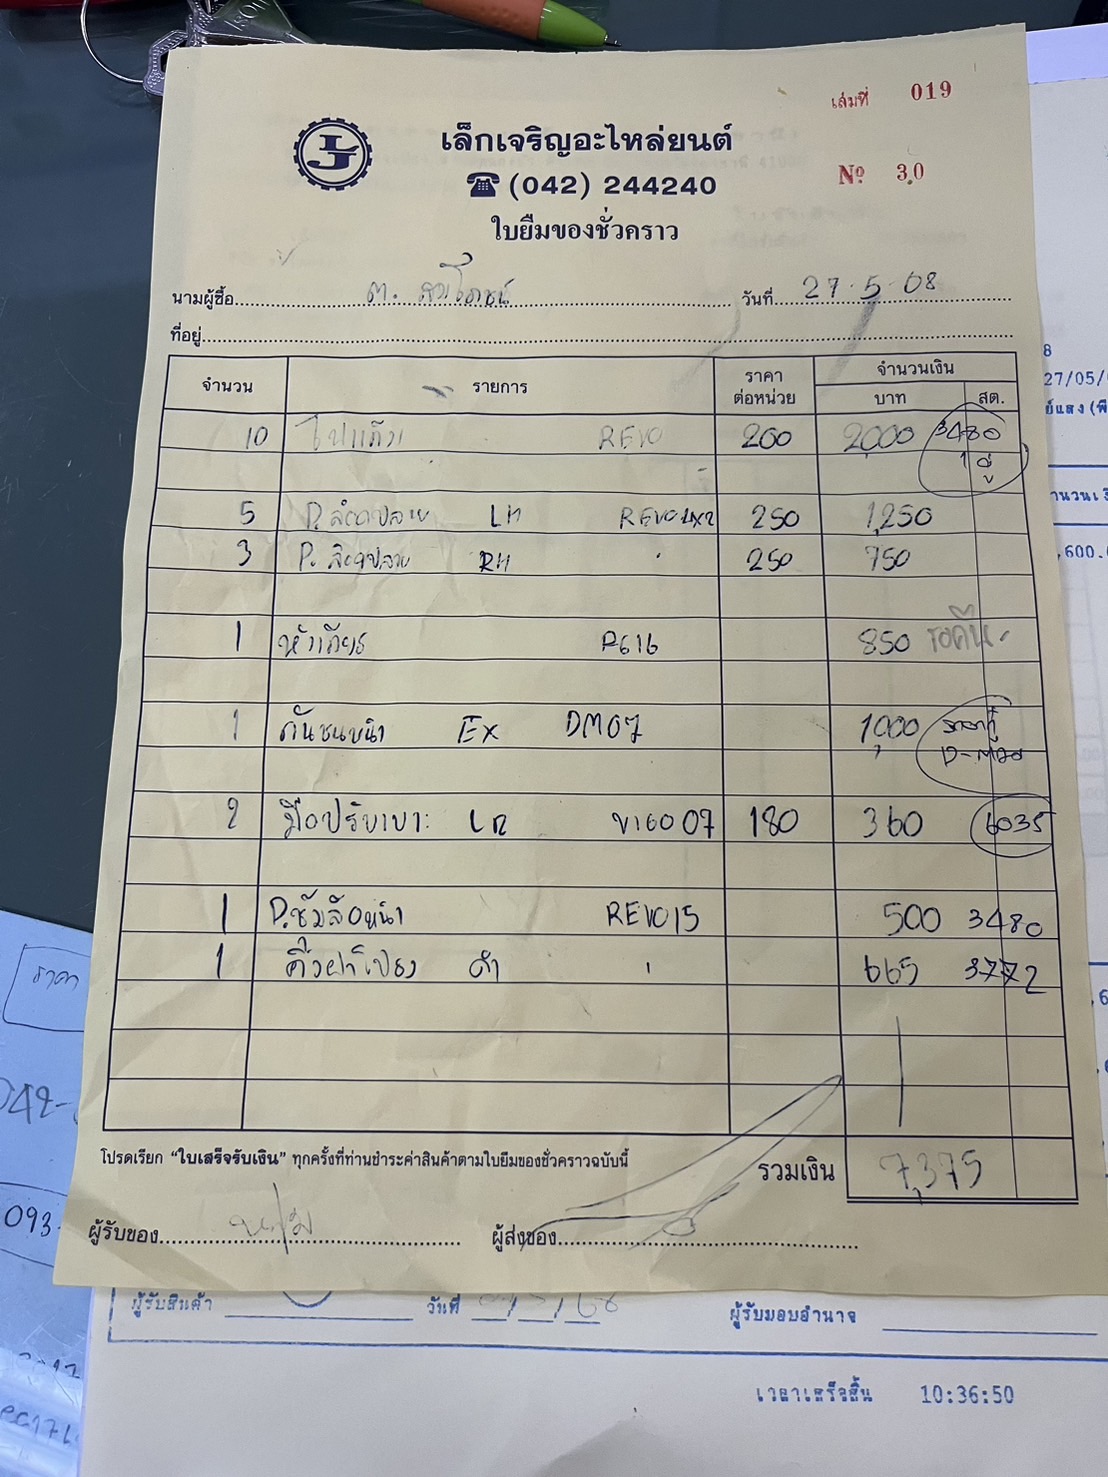 เล่มที่ 019
เล็กเจริญอะไหล่ยนต์
(042) 244240
Nº 30
ใบยืมของชั่วคราว
นามผู้ซื้อ วันที่ 27-5-08
ที่อยู่
จำนวน รายการ ราคาต่อหน่วย จำนวนเงิน บาท สต.
10 REVO 200 2,000 3480
1 คู่
5 LH REVO 4x2 250 1,250
3 RH 250 750
1 P616 850 รอคืน
1 กันชนหน้า EX DM07 1,000
2 มือปรับเบาะ LR VIGO 07 180 360 6035
1 P.ซุ้มล้อหน้า REVO 15 500 3480
1 คิ้วฝากระโปรง ดำ 665 3772
โปรดเรียก "ใบเสร็จรับเงิน" ทุกครั้งที่ท่านชำระค่าสินค้าตามใบยืมของชั่วคราวฉบับนี้
รวมเงิน 7,375
ผู้รับของ ผู้ส่งของ
ผู้รับสินค้า วันที่ ผู้รับมอบอำนาจ
เวลาเสร็จสิ้น 10:36:50
8
27/05/
,600.
ราคา
042-
093-